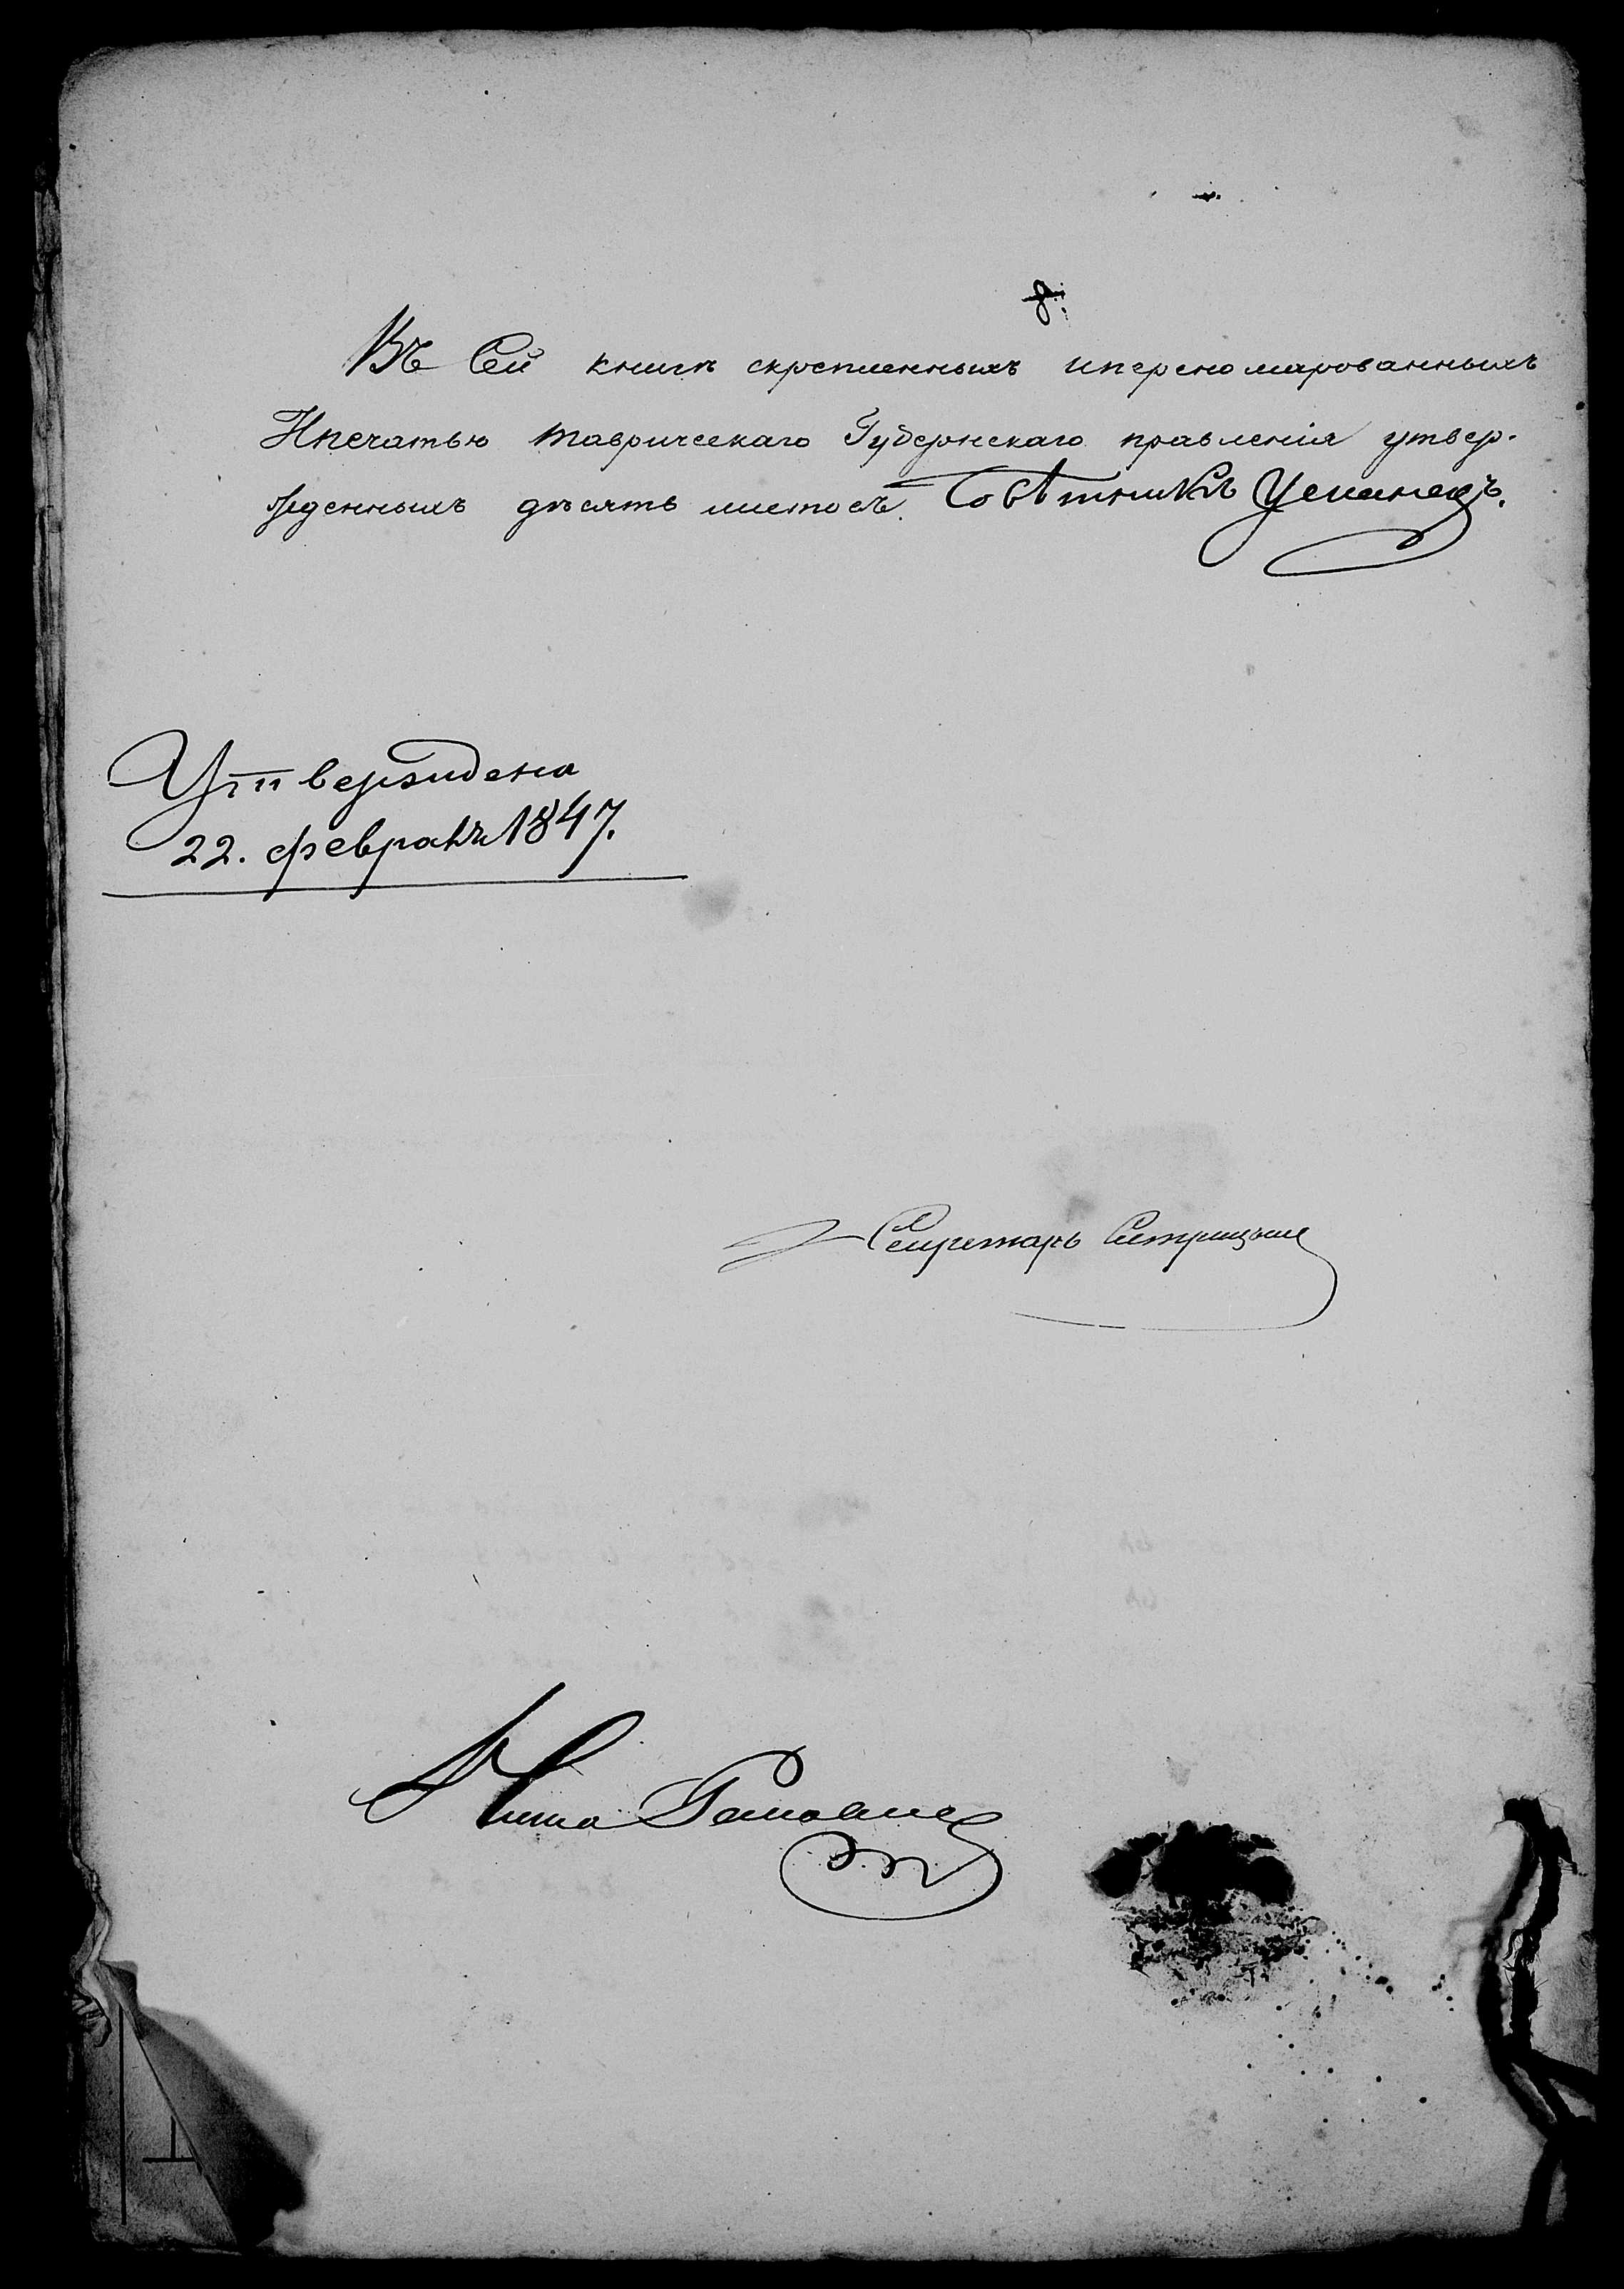 Въ Сей книгѣ скрепленныхъ ипереномированныхъ
Ипечатью таврическаго Губернскаго правленія утвер-
жденныхъ дѣсять листовъ. Совѣтникъ
Утверждена
22. февраля 1847.
Секретарь